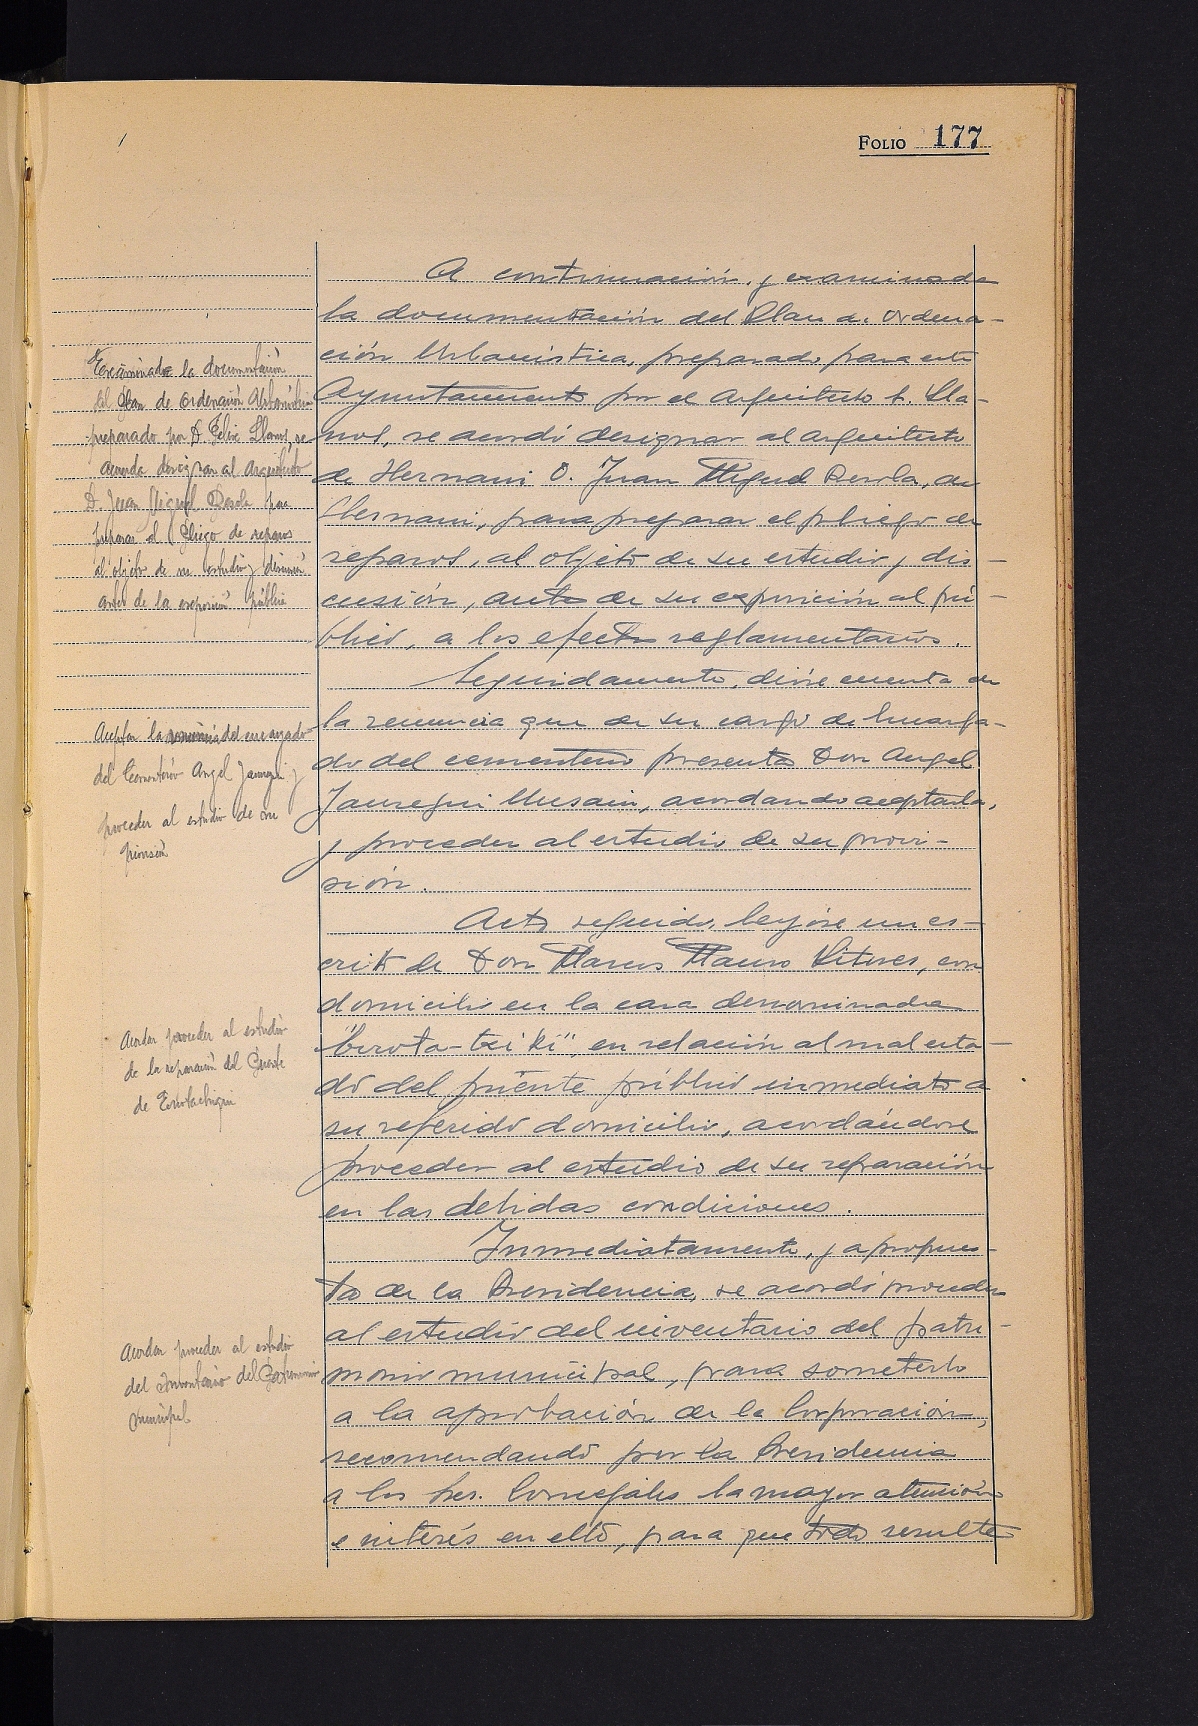 FOLIO 177
A continuación, y examinada
la documentación del Plan de Ordena-
ción Urbanística, preparado para este
Ayuntamiento por el Arquitecto F. Lla-
nos, se acordó designar al arquitecto
de Hernani D. Juan Miguel de
Hernani, para preparar el pliego de
reparos, al objeto de su estudio y dis-
cusión, antes de su exposición al pú-
blico, a los efectos reglamentarios.
Seguidamente, dióse cuenta de
la renuncia que de su cargo de Encarga-
do del cementerio presenta Don Angel
Jauregui Unsain, acordando aceptarla,
y proceder al estudio de su provi-
sión.
Acto seguido, leyóse un es-
crito de Don Marcos Mauro Vitores, con
domicilio en la casa denominada
"Errota-txiki", en relación al mal esta-
do del puente público inmediato a
su referido domicilio, acordándose
proceder al estudio de su reparación
en las debidas condiciones.
Inmediatamente, y a propues-
ta de la Presidencia, se acordó proceder
al estudio del inventario del patri-
monio municipal, para someterlo
a la aprobación de la Corporación,
recomendando por la Presidencia
a los Sres. Concejales la mayor atención
e interés en ello, para que todo resulte
Examinada la documentación
del Plan de Ordenación Urbanística
preparado por D. Felix Llanos, se
acuerda designar al Arquitecto
D. Juan Miguel para
preparar el Pliego de reparos
al objeto de su estudio y discusión
antes de la exposición pública
Aceptar la renuncia del encargado
del Cementerio Angel Jauregui y
proceder al estudio de su
provisión
Acordar proceder al estudio
de la reparación del Puente
de
Acordar proceder al estudio
del Inventario del Patrimonio
Municipal